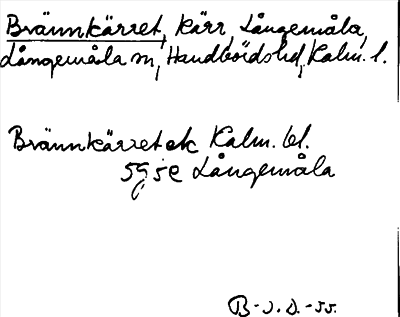 Brännkärret, kärr, Långemåla,
Långemåla sn, Handbörds hd, Kalm. l.
Brännkärret ek Kalm. bl.
5G 5e Långemåla
B-J.D.-55.